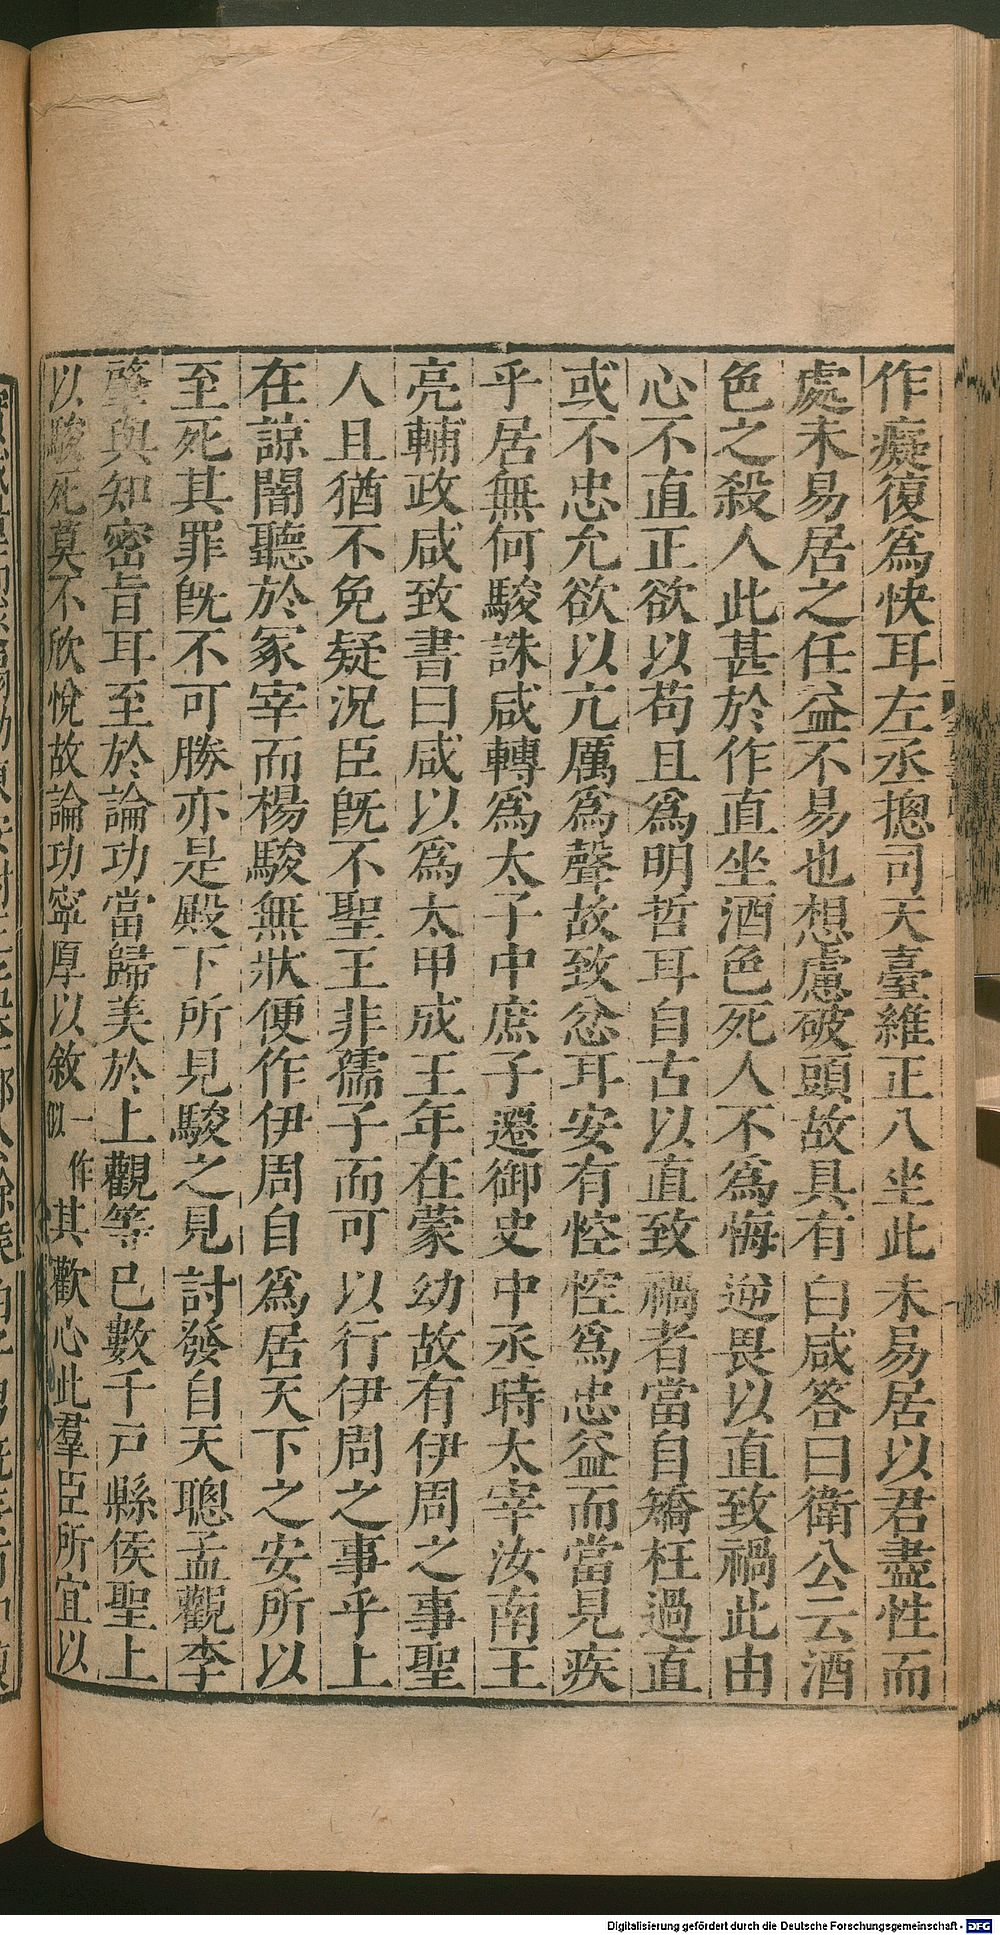 作癡復爲快耳左丞摠司天臺維正八坐此未易居以君盡性而
處未易居之任益不易也想慮破頭故具有白咸答曰衛公云酒
色之殺人此甚於作直坐酒色死人不爲悔逆畏以直致禍此由
心不直正欲以苟且爲明哲耳自古以直致禍者當自矯枉過直
或不忠允欲以亢厲爲聲故致忿耳安有悾悾爲忠益而當見疾
乎居無何駿誅咸轉爲太子中庶子遷御史中丞時太宰汝南王
亮輔政咸致書曰咸以爲太甲成王年在蒙幼故有伊周之事聖
人且猶不免疑況臣旣不聖王非孺子而可以行伊周之事乎上
在諒闇聽於冢宰而楊駿無狀便作伊周自爲居天下之安所以
至死其罪旣不可勝亦是殿下所見駿之見討發自天聰孟觀李
肇與知密旨耳至於論功當歸美於上觀等已數千戸縣侯聖上
以駿死莫不欣悅故論功寧厚以敘一作似其歡心此羣臣所宜以
Digitalisierung gefördert durch die Deutsche Forschungsgemeinschaft - DFG